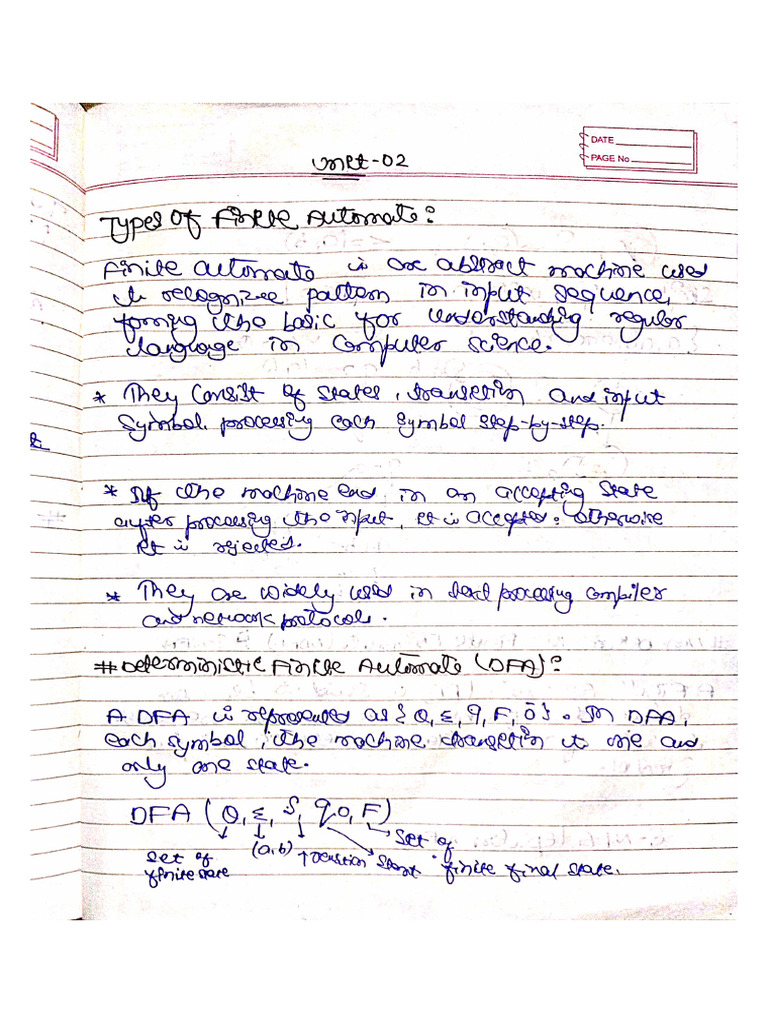 DATE
PAGE No
Unit-02
Types of Finite Automata:
Finite automata is an abstract machine used
to recognize pattern in input sequence,
forming the basic for understanding regular
language in computer science.
* They consist of states, transition and input
symbol, processing each symbol step-by-step.
* If the machine end in an accepting state
after processing the input, it is accepted; otherwise
it is rejected.
* They are widely used in text processing compiler
and network protocols.
# Deterministic Finite Automata (DFA):
A DFA is represented as { Q, Σ, q, F, δ }. In DFA,
each symbol, the machine transition to one and
only one state.
DFA (Q, Σ, δ, q0, F)
set of
finite state
(a,b)
transition
start
set of
finite final state.